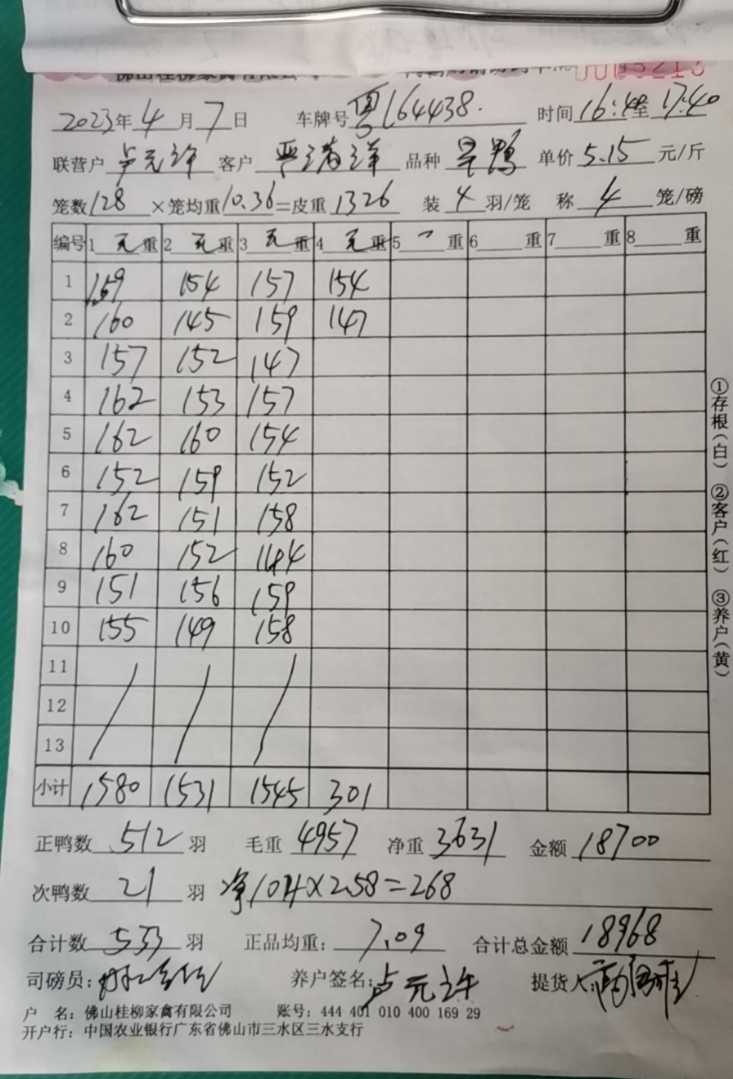 佛山桂柳家禽有限公司
2023年4月7日 车牌号粤L64438. 时间16:40至17:40
联营户卢元许 客户 品种旱鸭 单价5.15元/斤
笼数128×笼均重10.36=皮重1326 装4羽/笼 称4笼/磅
编号 1毛重 2毛重 3毛重 4毛重 5一重 6重 7重 8重
1 159 154 157 154
2 160 145 159 147
3 157 152 147
4 162 153 157
5 162 160 154
6 152 159 152
7 162 151 158
8 160 152 144
9 151 156 159
10 155 149 158
11
12
13
小计 1580 1531 1545 301
正鸭数512羽 毛重4957 净重3631 金额18700
次鸭数21羽 净104×2.58=268
合计数533羽 正品均重:7.09 合计总金额18968
司磅员: 养户签名:卢元许 提货人
户 名:佛山桂柳家禽有限公司 账号:444 401 010 400 169 29
开户行:中国农业银行广东省佛山市三水区三水支行
①存根(白) ②客户(红) ③养户(黄)